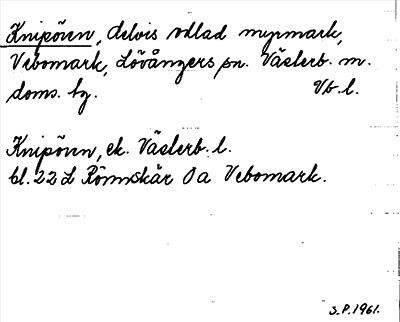 Knipören, delvis odlad myrmark,
Vebomark, Lövångers sn. Västerb. m.
doms. tg. Vb. l.
Knipören, ek. Västerb. l.
bl. 22 d Rönnskär Oa Vebomark.
S.P. 1961.